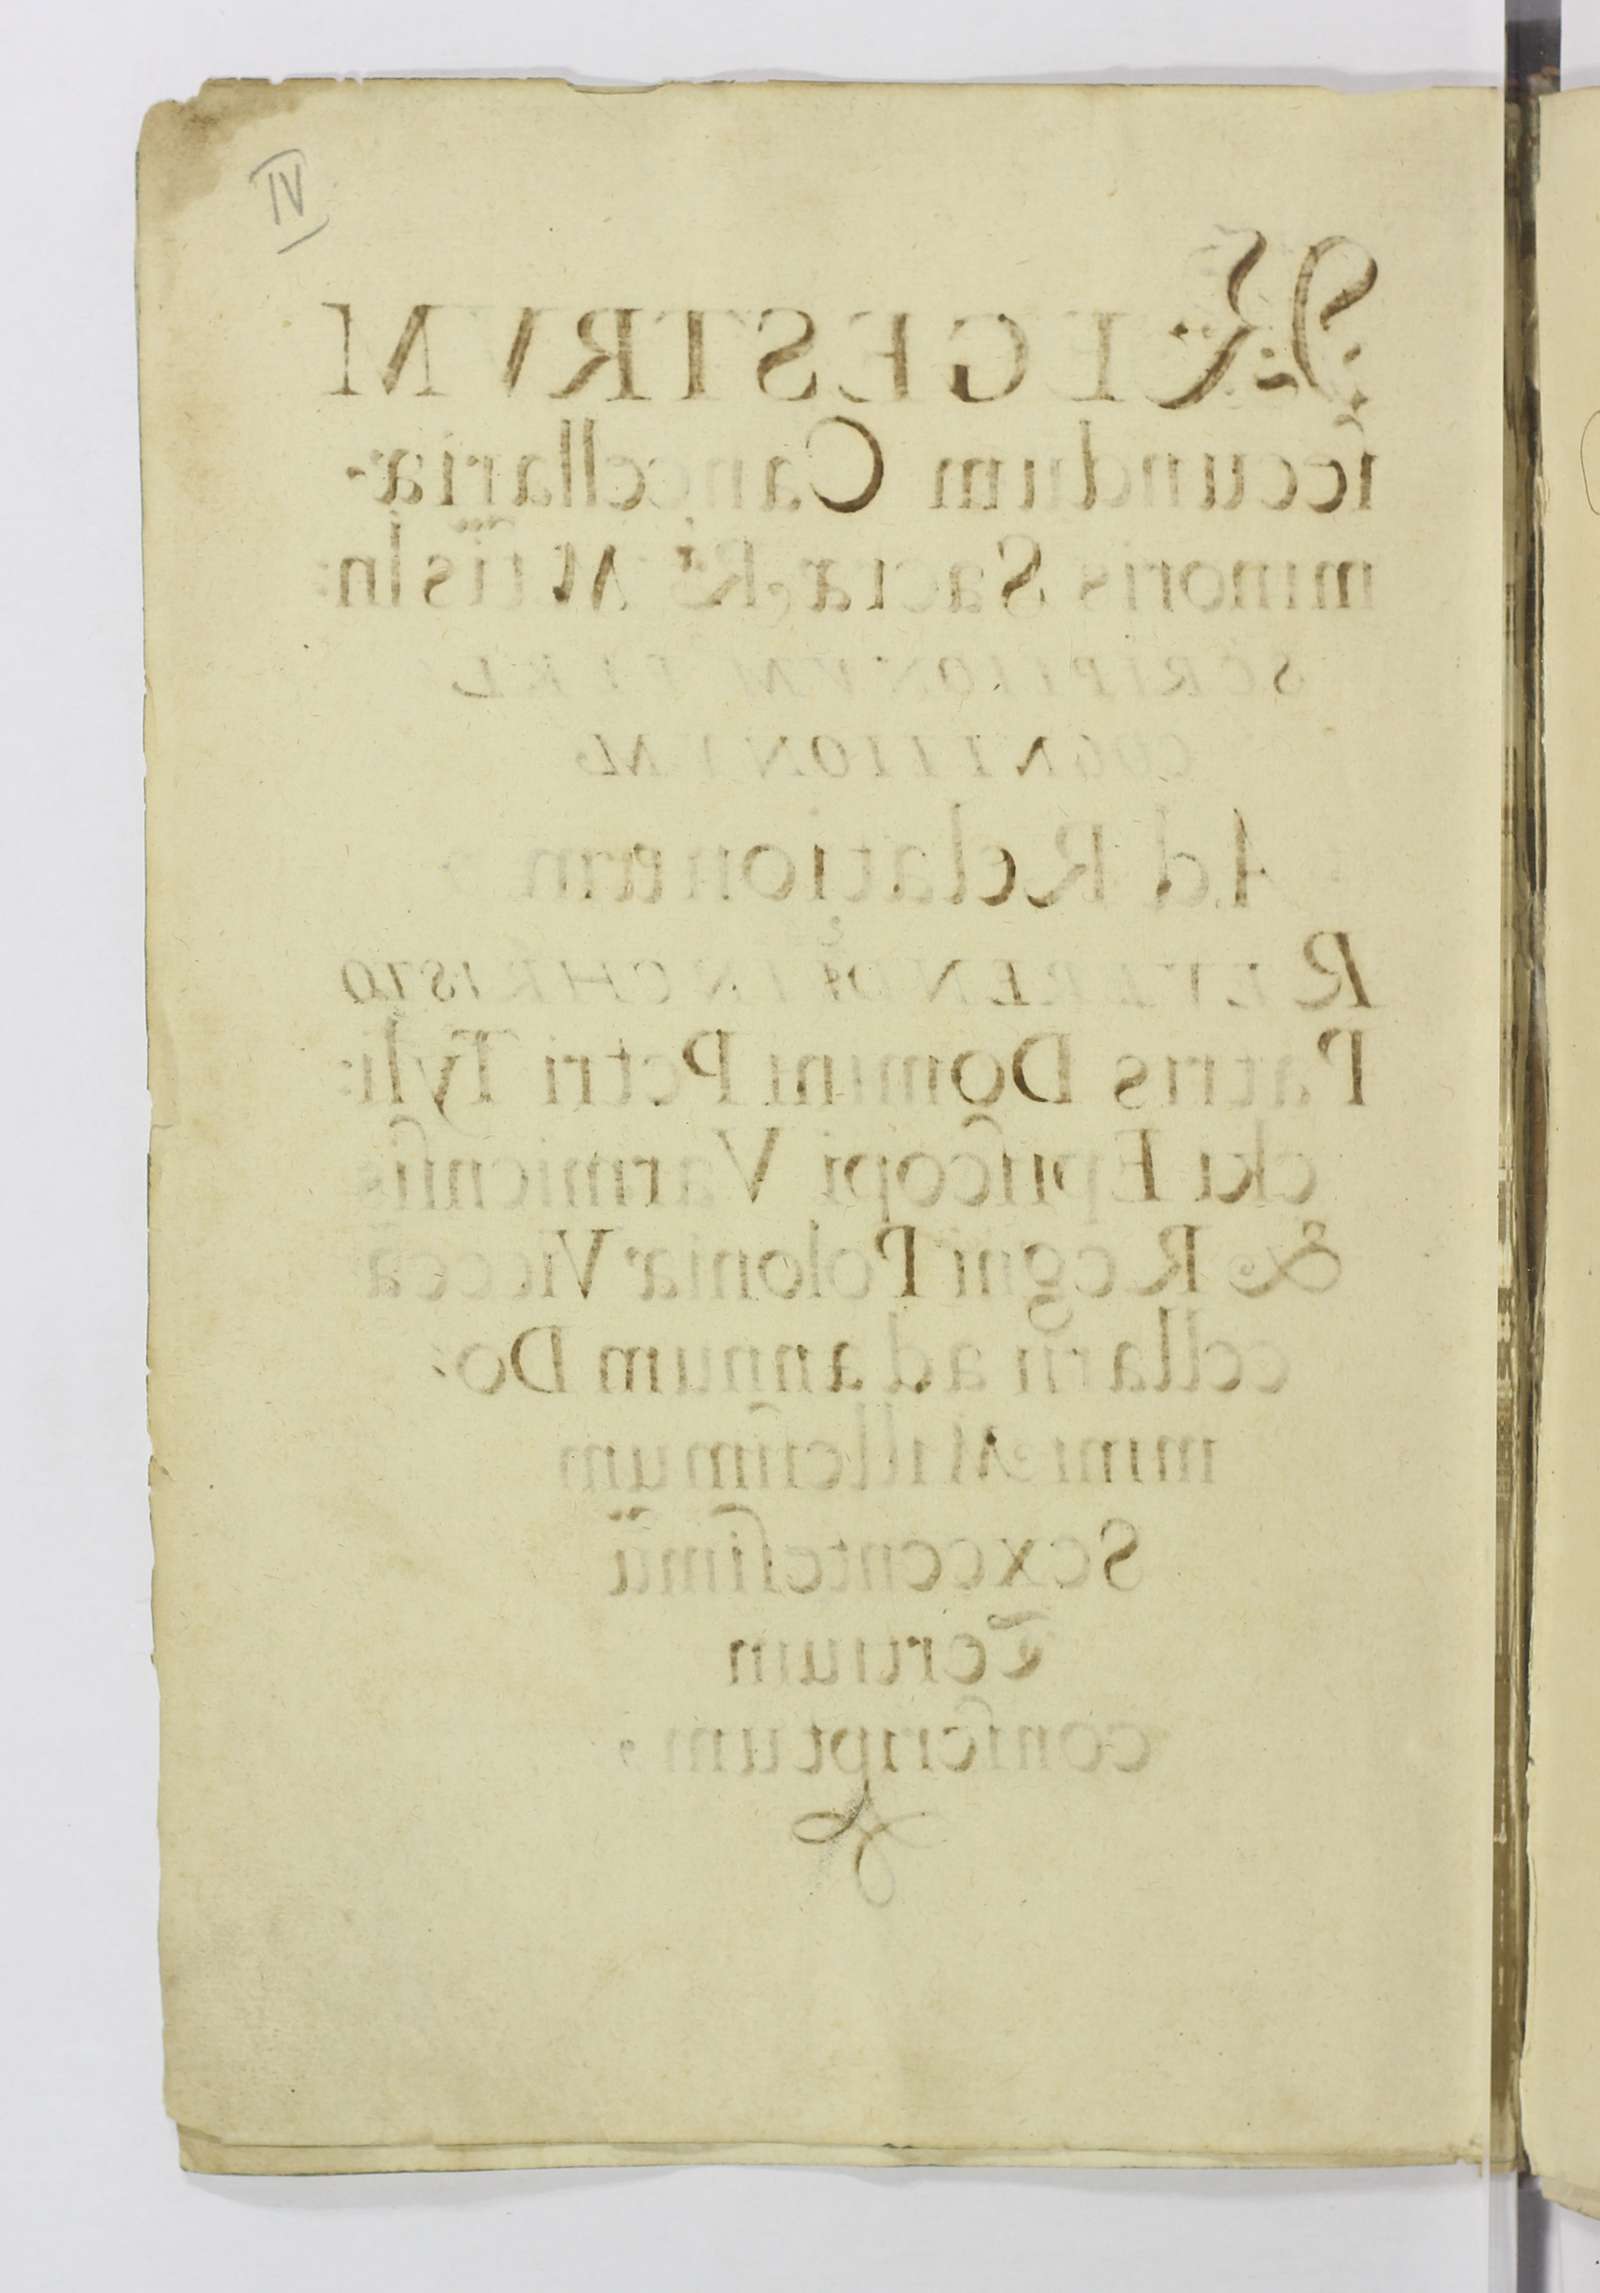 IV
REGESTRVM
secundum Cancellariæ
minoris Sacræ Rᵉ Mttis In:
SCRIPTIONVM ET RE
COGNITIONVM
Ad Relationem
REVERENDI IN CHRISTO
Patris Domini Petri Tyli:
cki Episcopi Varmiensis
& Regni Poloniæ Vicecā
cellarii ad annum Do:
mini Millesimum
Sexcentesimū
Tertium
conscriptum,